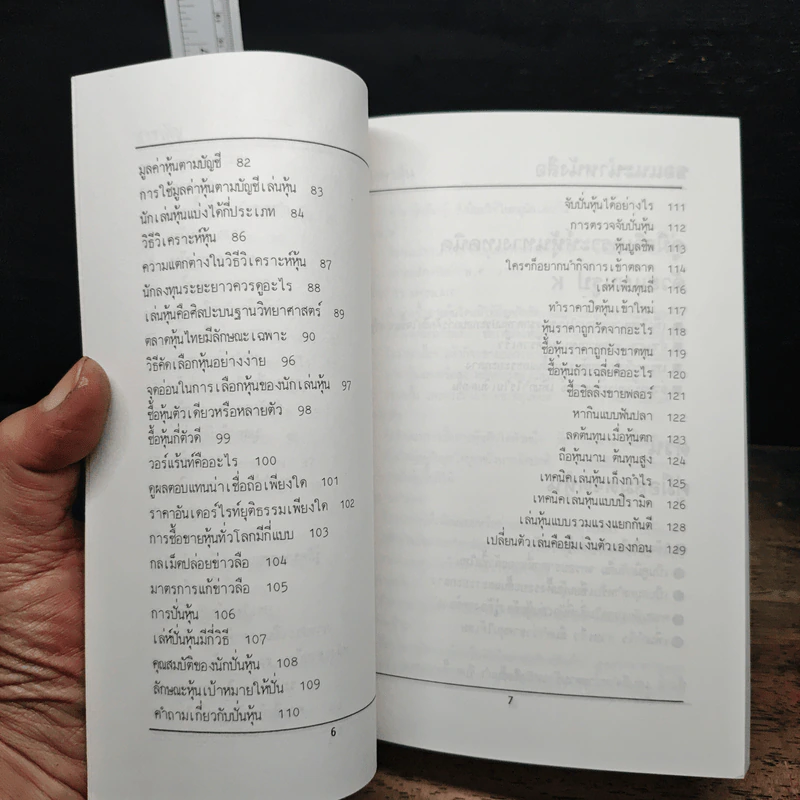 มูลค่าหุ้นตามบัญชี 82
การใช้มูลค่าหุ้นตามบัญชีเล่นหุ้น 83
นักเล่นหุ้นแบ่งได้กี่ประเภท 84
วิธีวิเคราะห์หุ้น 86
ความแตกต่างในวิธีวิเคราะห์หุ้น 87
นักลงทุนระยะยาวควรดูอะไร 88
เล่นหุ้นคือศิลปะบนฐานวิทยาศาสตร์ 89
ตลาดหุ้นไทยมีลักษณะเฉพาะ 90
วิธีคัดเลือกหุ้นอย่างง่าย 96
จุดอ่อนในการเลือกหุ้นของนักเล่นหุ้น 97
ซื้อหุ้นตัวเดียวหรือหลายตัว 98
ซื้อหุ้นกี่ตัวดี 99
วอร์แร้นท์คืออะไร 100
ดูผลตอบแทนน่าเชื่อถือเพียงใด 101
ราคาอันเดอร์ไรท์ยุติธรรมเพียงใด 102
การซื้อขายหุ้นทั่วโลกมีกี่แบบ 103
กลเม็ดปล่อยข่าวลือ 104
มาตรการแก้ข่าวลือ 105
การปั่นหุ้น 106
เล่ห์ปั่นหุ้นมีกี่วิธี 107
คุณสมบัติของนักปั่นหุ้น 108
ลักษณะหุ้นเป้าหมายให้ปั่น 109
คำถามเกี่ยวกับปั่นหุ้น 110
6
จับปั่นหุ้นได้อย่างไร 111
การตรวจจับปั่นหุ้น 112
หุ้นบูลชิพ 113
ใครๆก็อยากนำกิจการเข้าตลาด 114
เล่ห์เพิ่มทุนถี่ 116
ทำราคาปิดหุ้นเข้าใหม่ 117
หุ้นราคาถูกวัดจากอะไร 118
ซื้อหุ้นราคาถูกยังขาดทุน 119
ซื้อหุ้นถัวเฉลี่ยคืออะไร 120
ซื้อซิลลิ่งขายฟลอร์ 121
หากินแบบฟันปลา 122
ลดต้นทุนเมื่อหุ้นตก 123
ถือหุ้นนาน ต้นทุนสูง 124
เทคนิคเล่นหุ้นเก็งกำไร 125
เทคนิคเล่นหุ้นแบบปิรามิด 126
เล่นหุ้นแบบรวมแรงแยกกันตี 128
เปลี่ยนตัวเล่นคือยืมเงินตัวเองก่อน 129
7